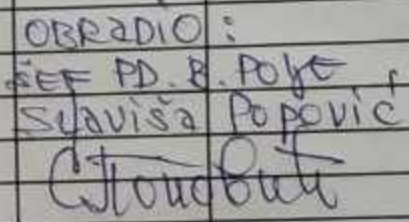 OBRADIO:
ŠEF PD. B. POLJE
Slaviša Popović